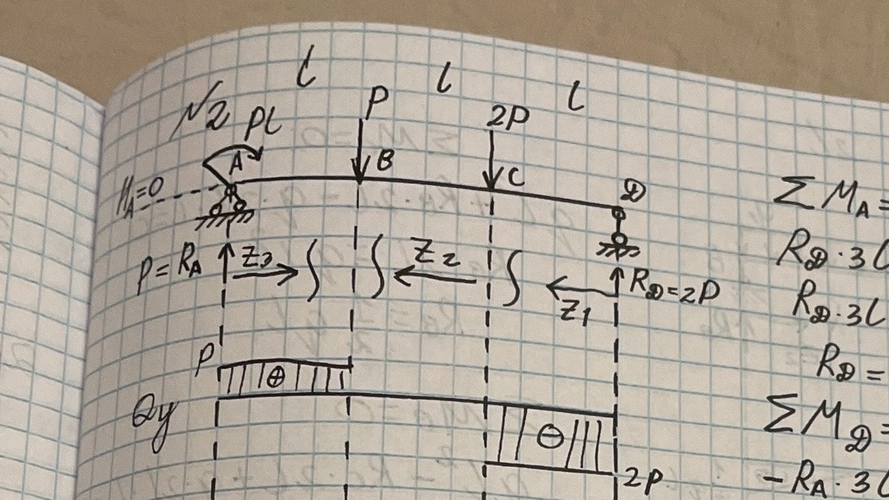 №2
l l l
Pl P 2P
A B C D
H_A=0
P=R_A Z3 Z2 Z1 R_D=2P
P ⊕
Qy ⊖
2P
ΣM_A=
R_D·3l
R_D·3l
R_D=
ΣM_D=
-R_A·3l